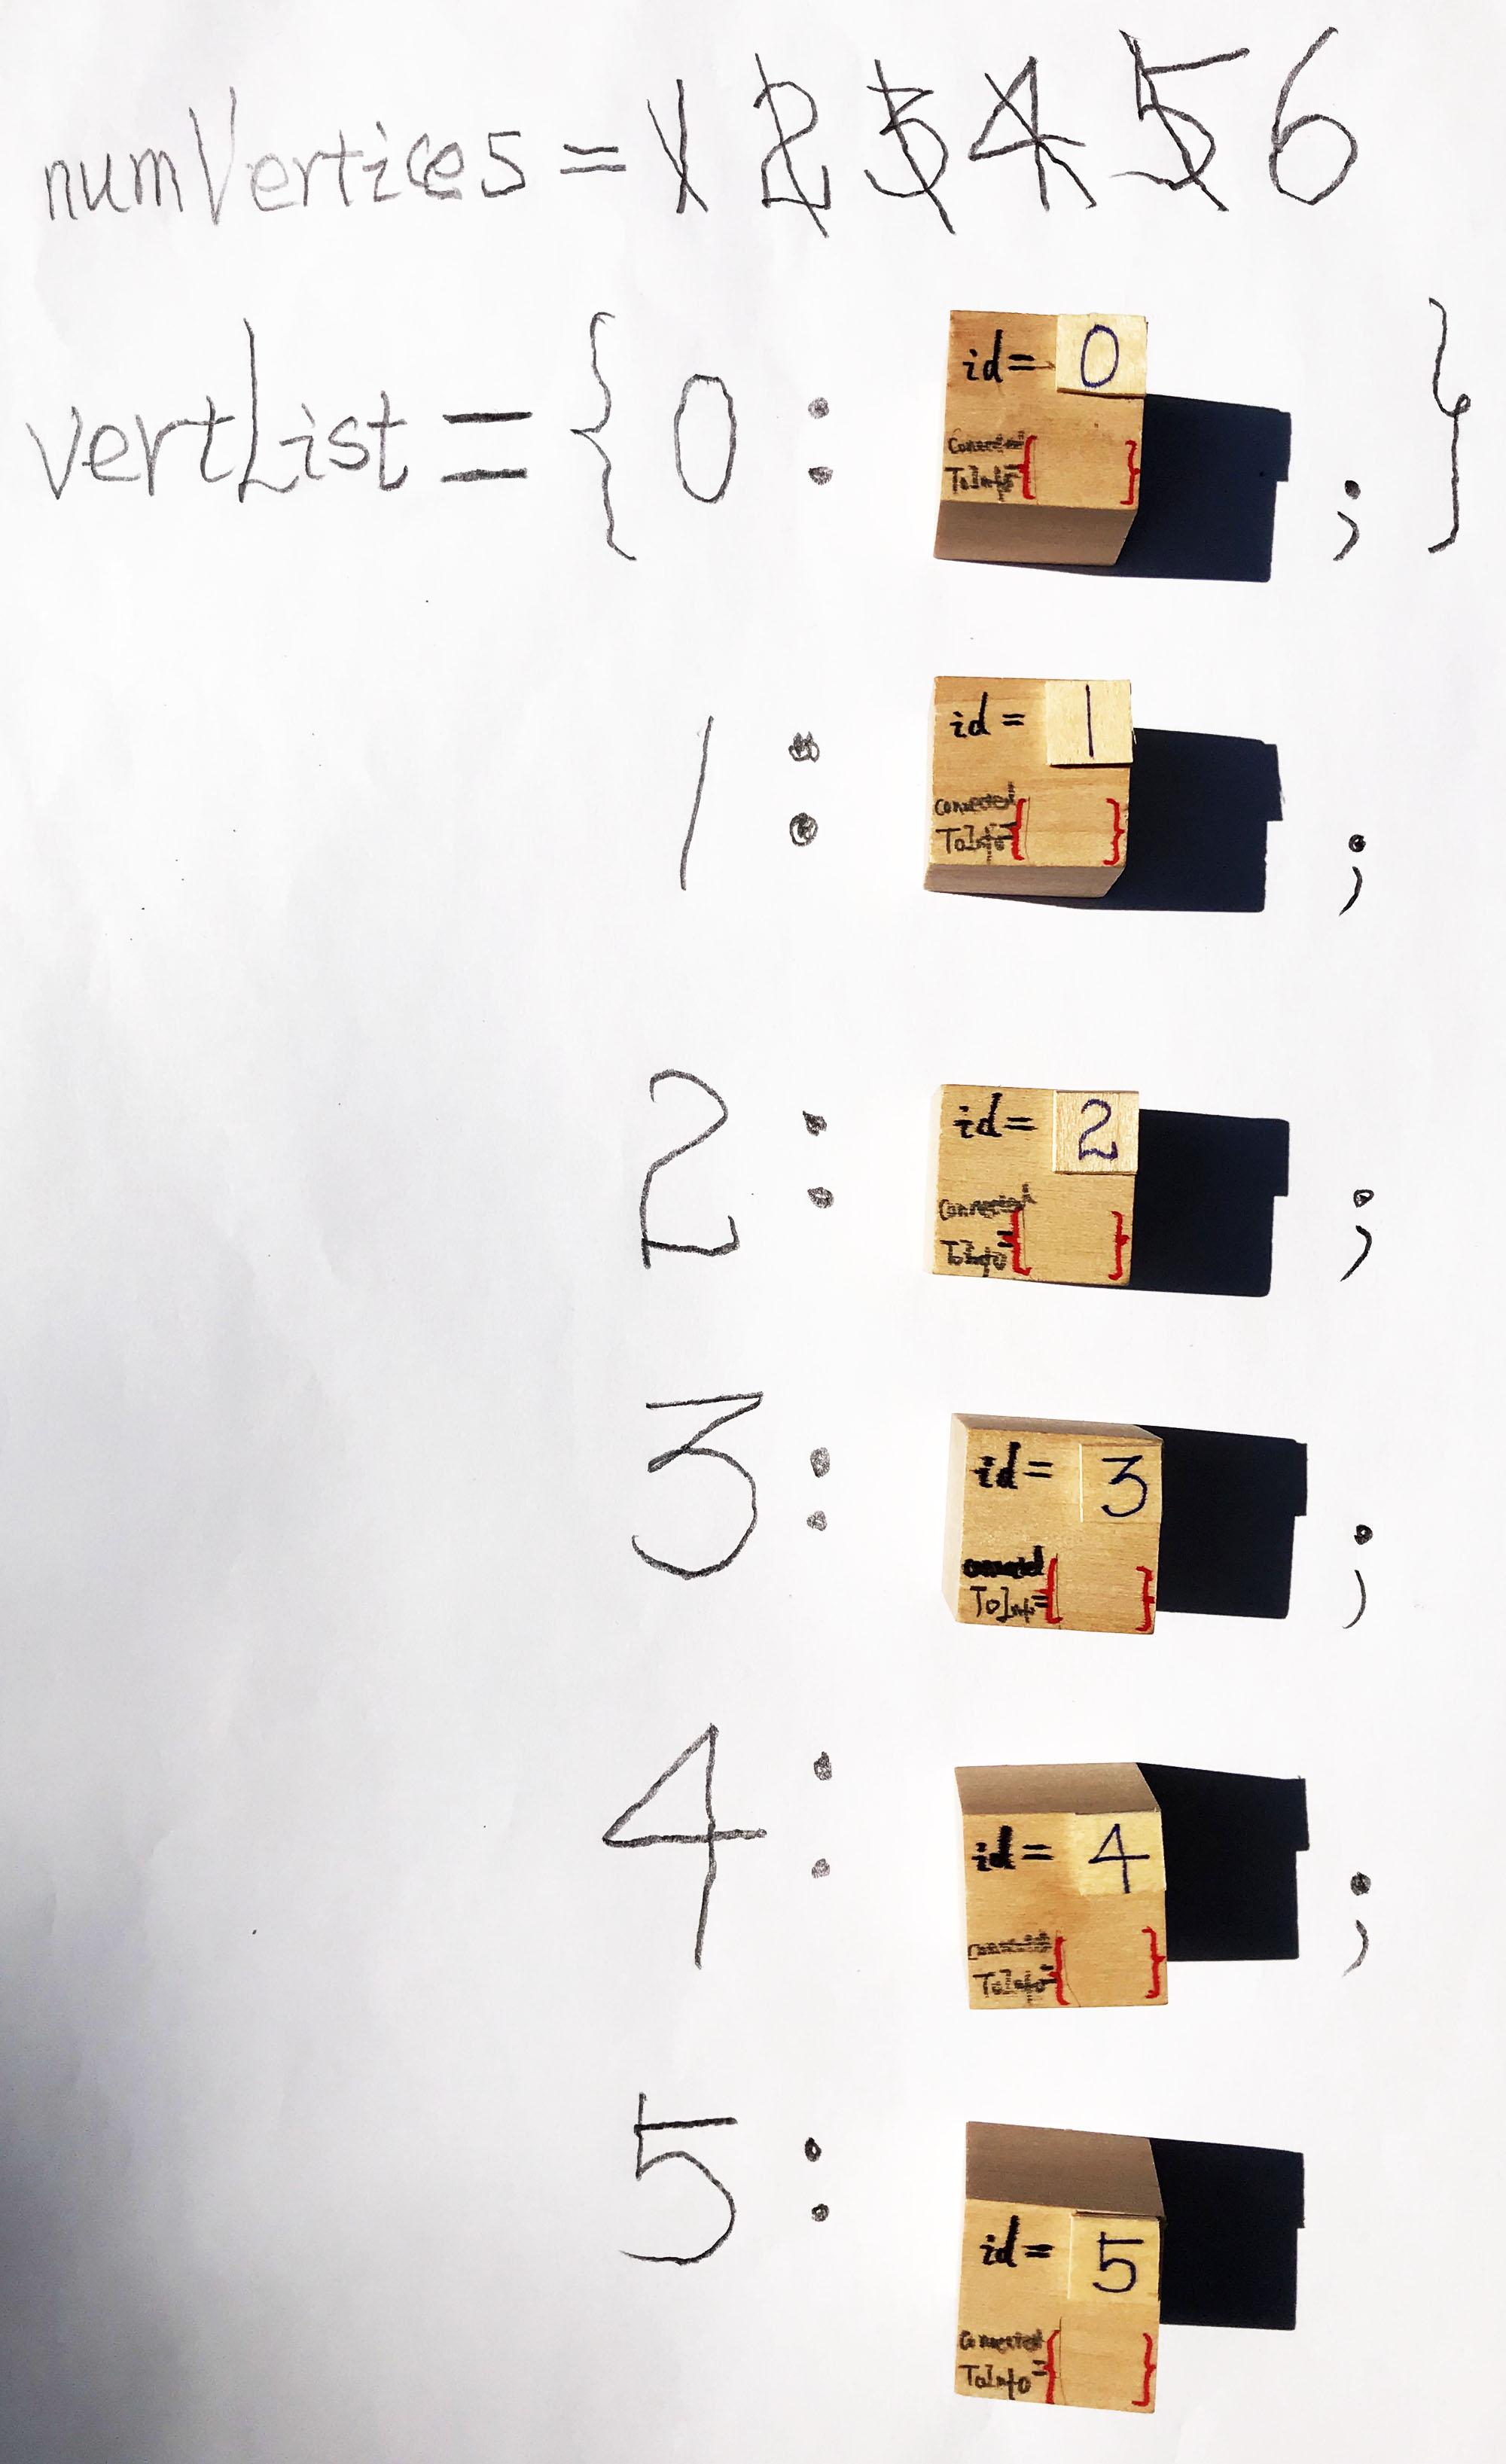 numVertices = 1 2 3 4 5 6
vertList = { 0 : ; }
id = 0
Connected
ToInfo = { }
1 : ;
id = 1
Connected
ToInfo = { }
2 : ;
id = 2
Connected
ToInfo = { }
3 : ;
id = 3
Connected
ToInfo = { }
4 : ;
id = 4
Connected
ToInfo = { }
5 :
id = 5
Connected
ToInfo = { }